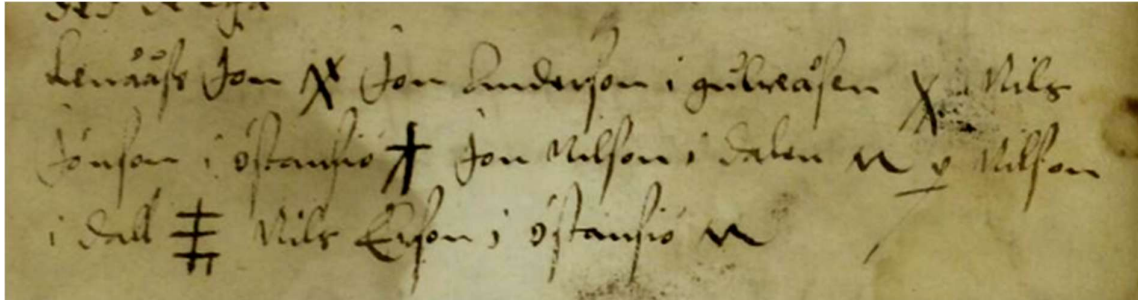 Lenååss Jon Jon Anderson i gulreåsen Nils
Jönson i östansiö Jon Nilson i dalen Nilson
i dall Nils Erson i östansiö